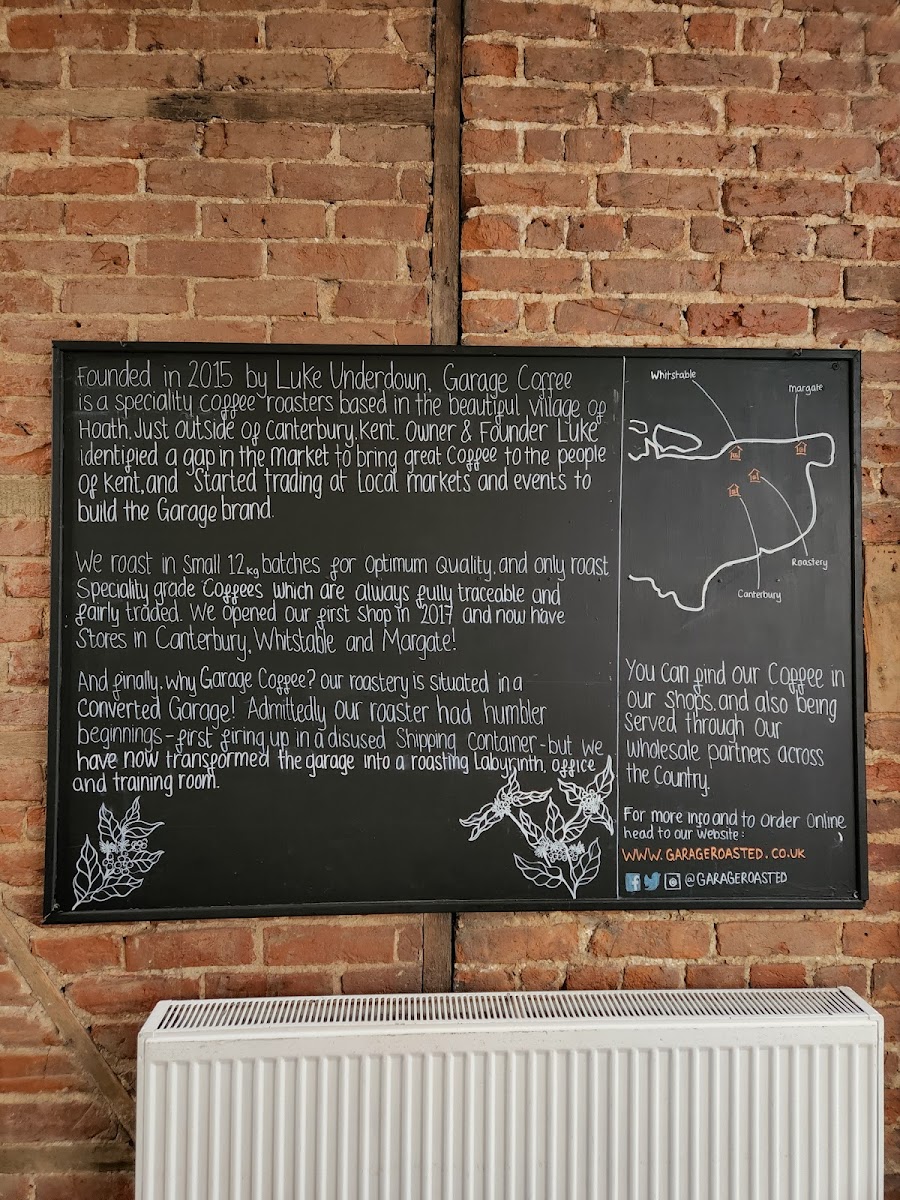 Founded in 2015 by Luke Underdown, Garage Coffee
is a speciality coffee roasters based in the beautiful village of
Hoath, Just outside of Canterbury, Kent. Owner & Founder Luke
identified a gap in the market to bring great Coffee to the people
of Kent, and Started trading at Local markets and events to
build the Garage brand.
We roast in Small 12kg batches for Optimum Quality, and only roast
Speciality grade Coffees which are always fully traceable and
fairly traded. We opened Our first Shop in 2017 and now have
Stores in Canterbury, Whitstable and Margate!
And finally, why Garage Coffee? Our roastery is situated in a
Converted Garage! Admittedly Our roaster had humbler
beginnings - first firing up in a disused Shipping Container - but we
have now transformed the garage into a roasting Labyrinth, office
and training room.
Whitstable
Margate
Roastery
Canterbury
You Can find our Coffee in
Our Shops, and also being
Served through Our
Wholesale partners across
the Country.
For more info and to Order Online,
head to our website:
WWW.GARAGEROASTED.CO.UK
@GARAGEROASTED